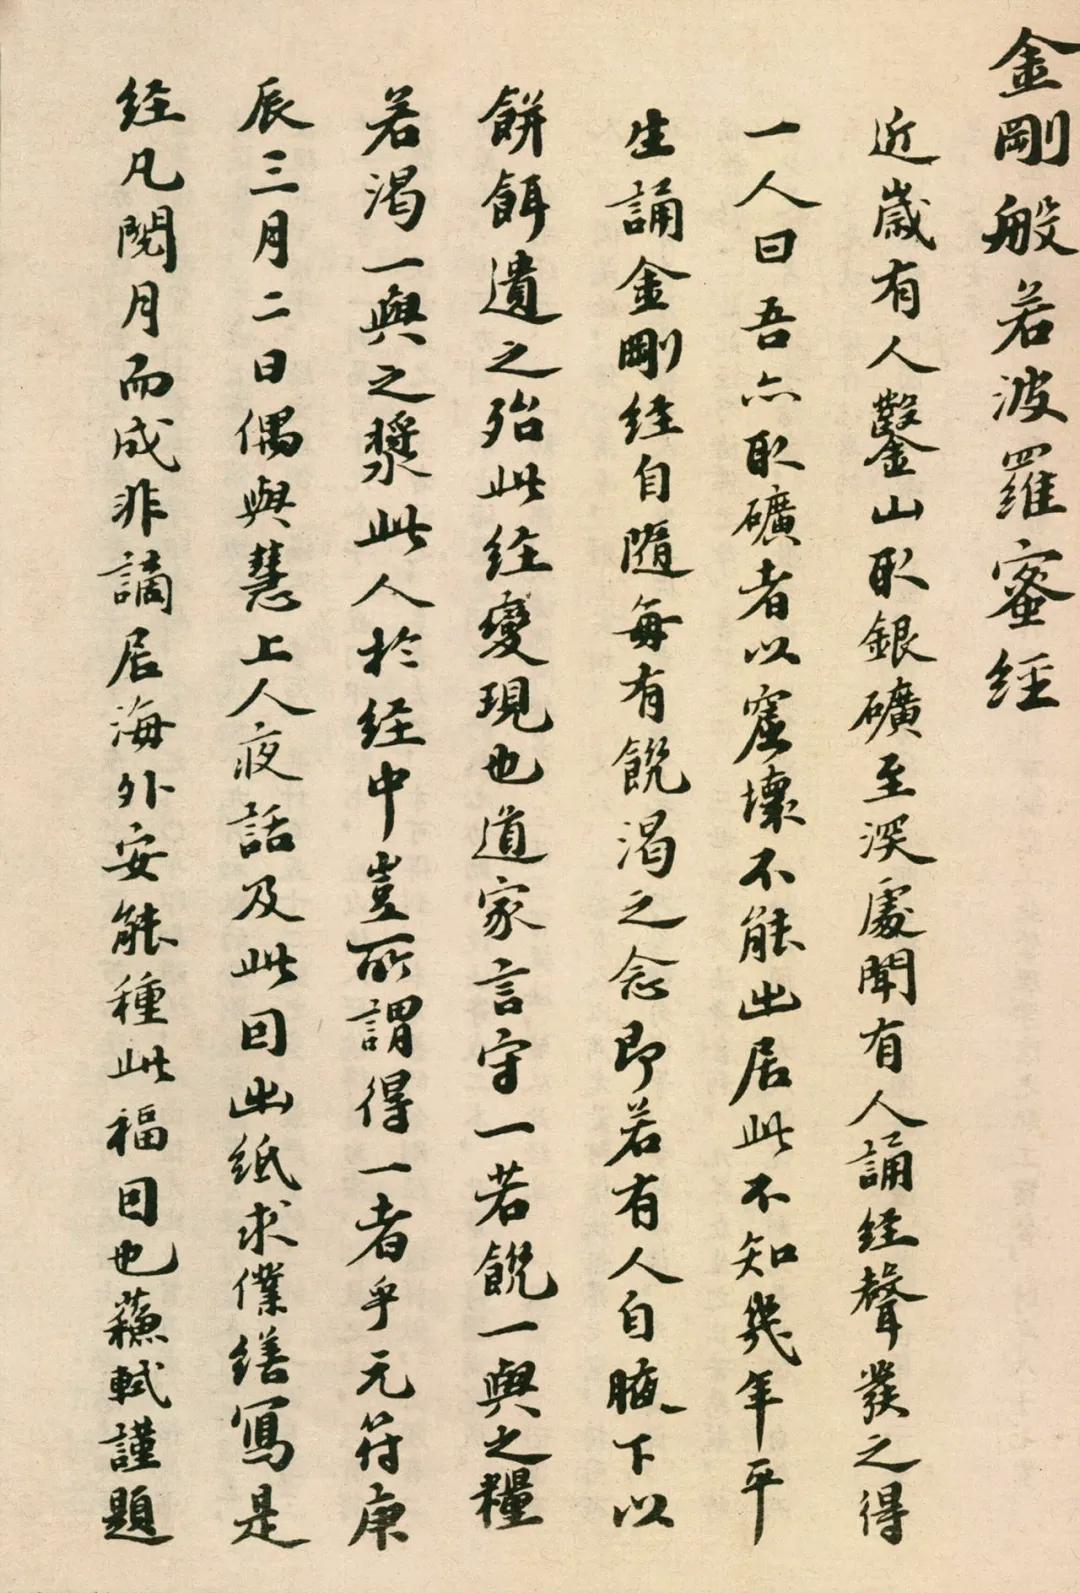 金剛般若波羅蜜經
近歲有人鑿山取銀礦至深處聞有人誦経聲發之得
一人曰吾亦取礦者以窟壞不能出居此不知幾年平
生誦金剛経自隨每有飢渴之念即若有人自腋下以
餅餌遺之殆此経變現也道家言守一若飢一與之糧
若渴一與之漿此人於経中豈所謂得一者乎元符庚
辰三月二日偶與慧上人夜話及此因出紙求僕繕寫是
経凡閱月而成非謫居海外安能種此福田也蘇軾謹題